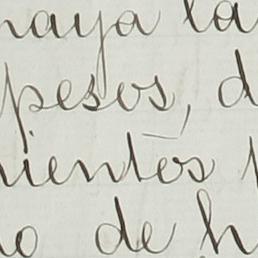 haya la
pesos, d
ientos
o de h